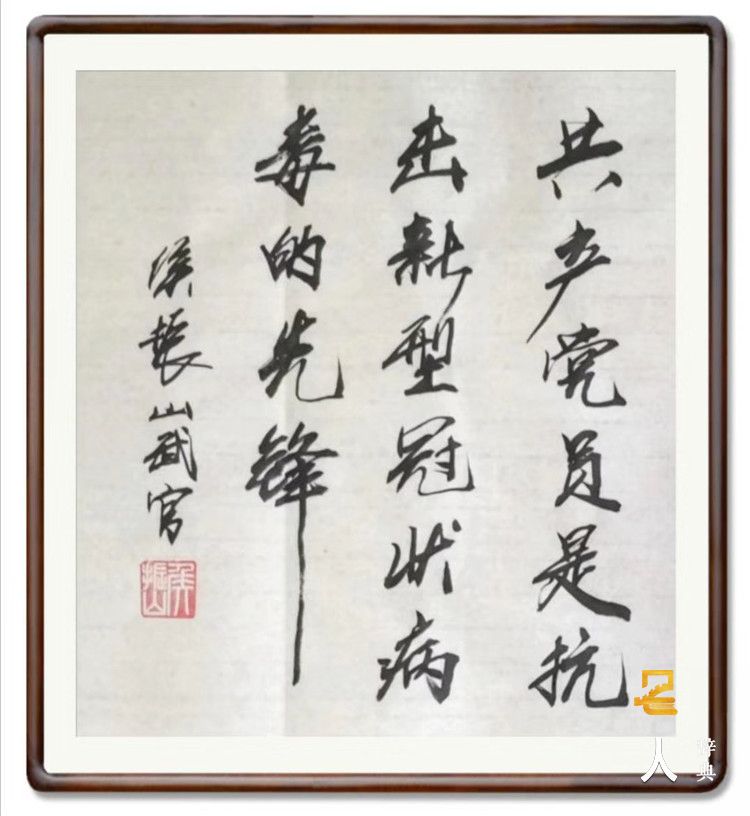 共产党员是抗
击新型冠状病
毒的先锋
侯振山武官
侯振山
名人
辞典